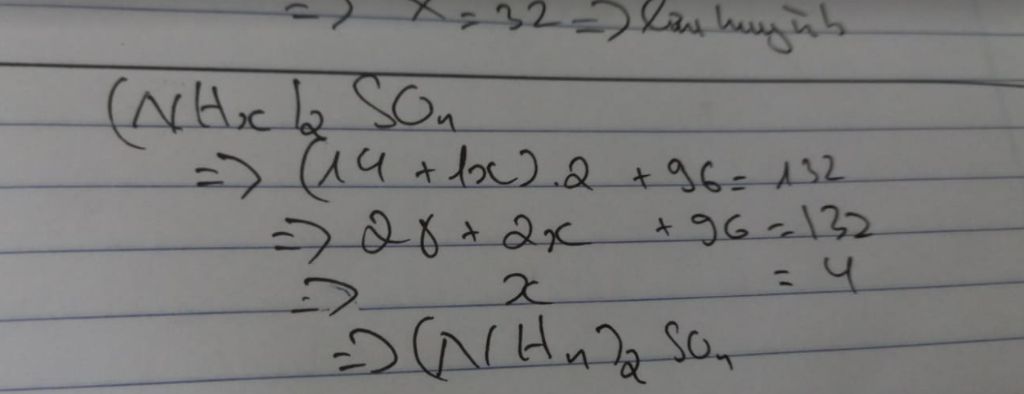 => x = 32 => lưu huỳnh
(NHx)2 SO4
=> (14 + 1x).2 + 96 = 132
=> 28 + 2x + 96 = 132
=> x = 4
=> (NH4)2 SO4